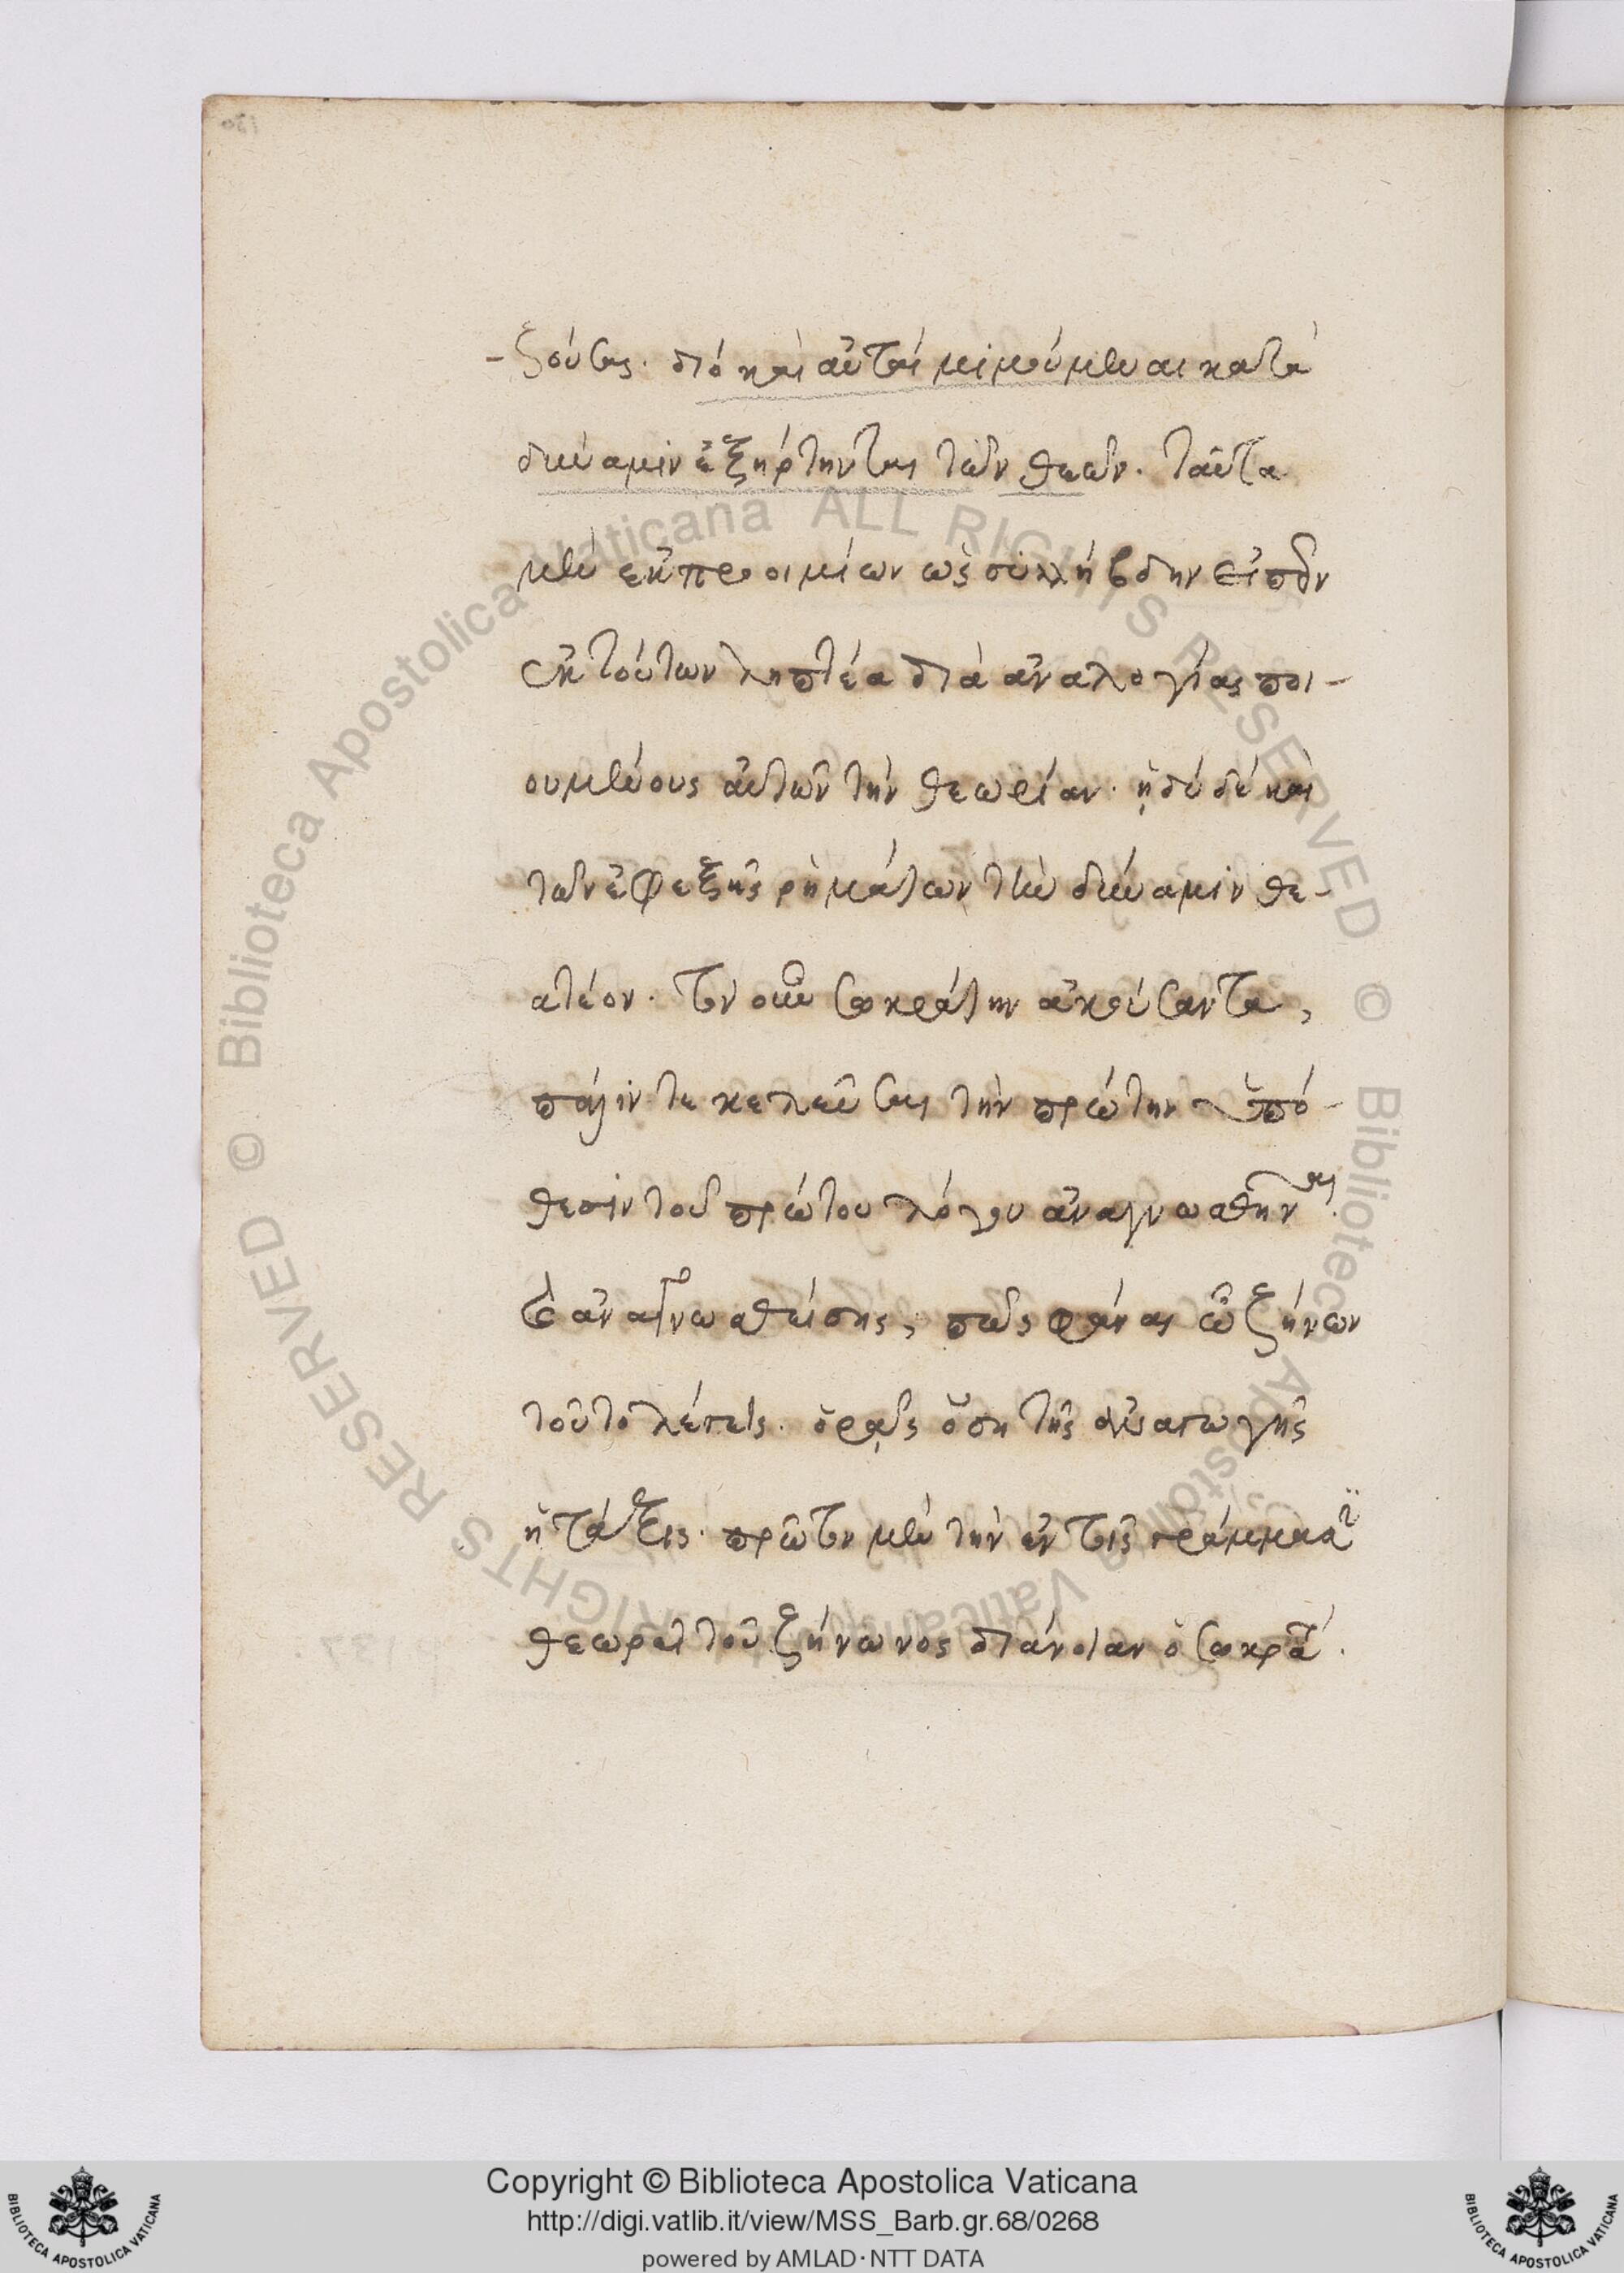 -ζούσας. διό καὶ αὐταί μιμούμεναι κατὰ
δύναμιν ἐξήρτηνται τῶν θεῶν. ταῦτα
μὲν ἐκ προοιμίων ὡς συλλήβδην εἰπεῖν
ἐκ τούτων ληπτέα διὰ ἀναλογίας ποι-
ουμένους αὐτῶν τὴν θεωρίαν. ἤδε δὲ καὶ
τῶν ἐφεξῆς ῥημάτων τὴν δύναμιν θε-
ατέον. τὸν οὖν σωκράτην ἀκούσαντα,
πάλιν τε κελεῦσαι τὴν πρώτην ὑπό-
θεσιν τοῦ πρώτου λόγου ἀναγνωσθῆναι.
καὶ ἀναγνωσθείσης, πῶς φάναι ὦ ζήνων
τοῦτο λέγεις. ὁρᾷς ὅση τῆς
ἡ τάξις. πρῶτον μὲν τὴν ἐν τοῖς γράμμασι
θεωρεῖ τοῦ ζήνωνος διάνοιαν ὁ σωκρά.
Copyright © Biblioteca Apostolica Vaticana
http://digi.vatlib.it/view/MSS_Barb.gr.68/0268
powered by AMLAD·NTT DATA
BIBLIOTECA APOSTOLICA VATICANA
BIBLIOTECA APOSTOLICA VATICANA
© Biblioteca Apostolica Vaticana ALL RIGHTS RESERVED
© Biblioteca Apostolica Vaticana ALL RIGHTS RESERVED